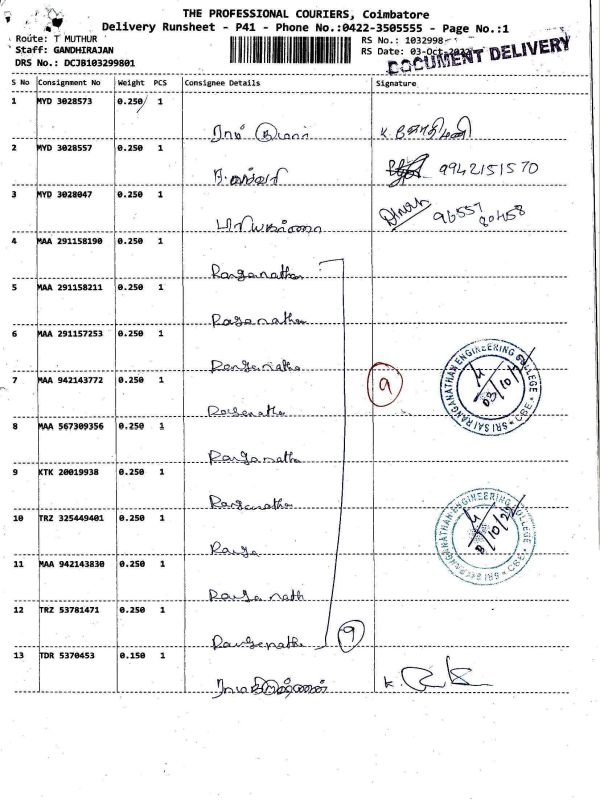 THE PROFESSIONAL COURIERS, Coimbatore
Delivery Runsheet - P41 - Phone No.:0422-3505555 - Page No.:1
Route: T MUTHUR
Staff: GANDHIRAJAN
DRS No.: DCJB103299801
RS No.: 1032998
RS Date: 03-Oct-2022
DOCUMENT DELIVERY
S No Consignment No Weight PCS Consignee Details Signature
1 MYD 3028573 0.250 1
ராம் குமார்
2 MYD 3028557 0.250 1
9942151570
3 MYD 3028047 0.250 1
96557
80458
4 MAA 291158190 0.250 1
Ranganathan
5 MAA 291158211 0.250 1
Ranganathan
6 MAA 291157253 0.250 1
Ranganatha
7 MAA 942143772 0.250 1
9
Ranganatha
8 MAA 567309356 0.250 1
Ranganatha
9 KTK 20019938 0.250 1
Ranganatha
10 TRZ 325449401 0.250 1
Ranga
11 MAA 942143830 0.250 1
Ranganath
12 TRZ 53781471 0.250 1
Ranganatha
9
13 TDR 5370453 0.150 1
ராமகிருஷ்ணன்
K.
SRI SAI RANGANATHAN ENGINEERING COLLEGE * CBE *
03/10/
SRI SAI RANGANATHAN ENGINEERING COLLEGE * CBE *
/10/22